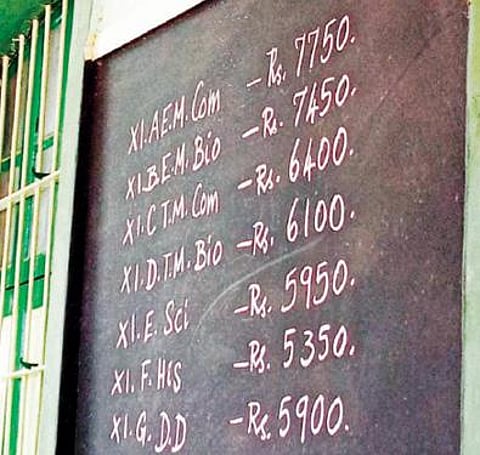 XI.A.E.M. Com - Rs. 7750.
XI.B.E.M. Bio - Rs. 7450.
XI.C T.M. Com - Rs. 6400.
XI.D.T.M. Bio - Rs. 6100.
XI. E. Sci - Rs. 5950.
XI. F. His - Rs. 5350.
XI. G. D.D - Rs. 5900.